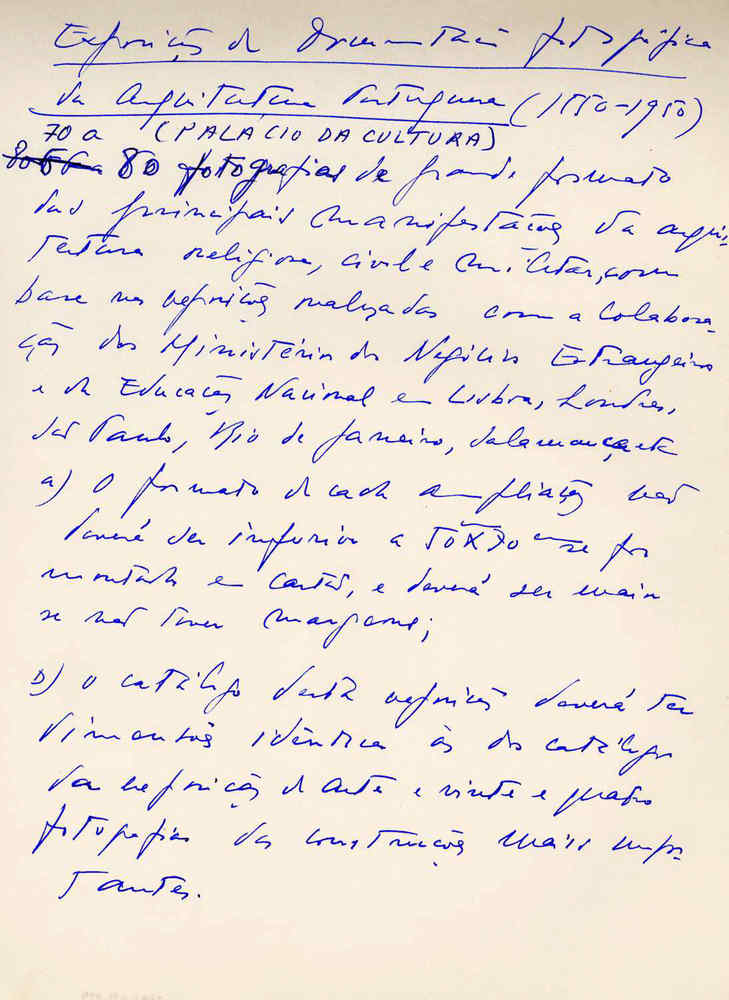 Exposição de Documentação fotográfica
da Arquitectura Portuguesa (1550-1950)
70 a (PALÁCIO DA CULTURA)
80 fotografias de grande formato
das principais manifestações da arqui-
tectura religiosa, civil e militar, com
base nas exposições realizadas com a colabora-
ção dos Ministério dos Negócios Estrangeiros
e da Educação Nacional em Lisboa, Londres,
São Paulo, Rio de Janeiro, Salamanca, etc
a) O formato de cada ampliação não
deverá ser inferior a 50X70 cm se for
montada em cartão, e deverá ser maior
se não tiver margens;
b) O catálogo desta exposição deverá ter
dimensões idênticas às do catálogo
da exposição de arte e vinte e quatro
fotografias das construções mais impor-
tantes.